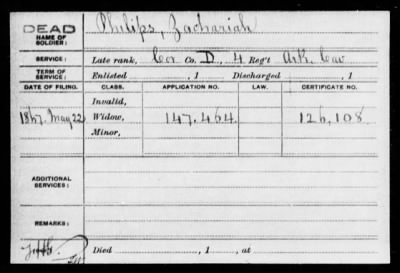 DEAD
NAME OF SOLDIER: Philips, Zachariah
SERVICE: Late rank, Cor Co. D, 4 Reg't Ark. Cav
TERM OF SERVICE: Enlisted , 1 Discharged , 1
DATE OF FILING. CLASS. APPLICATION NO. LAW. CERTIFICATE NO.
Invalid,
1867. May 22 Widow, 147.464 126,108
Minor,
ADDITIONAL SERVICES:
REMARKS:
Died , 1 , at